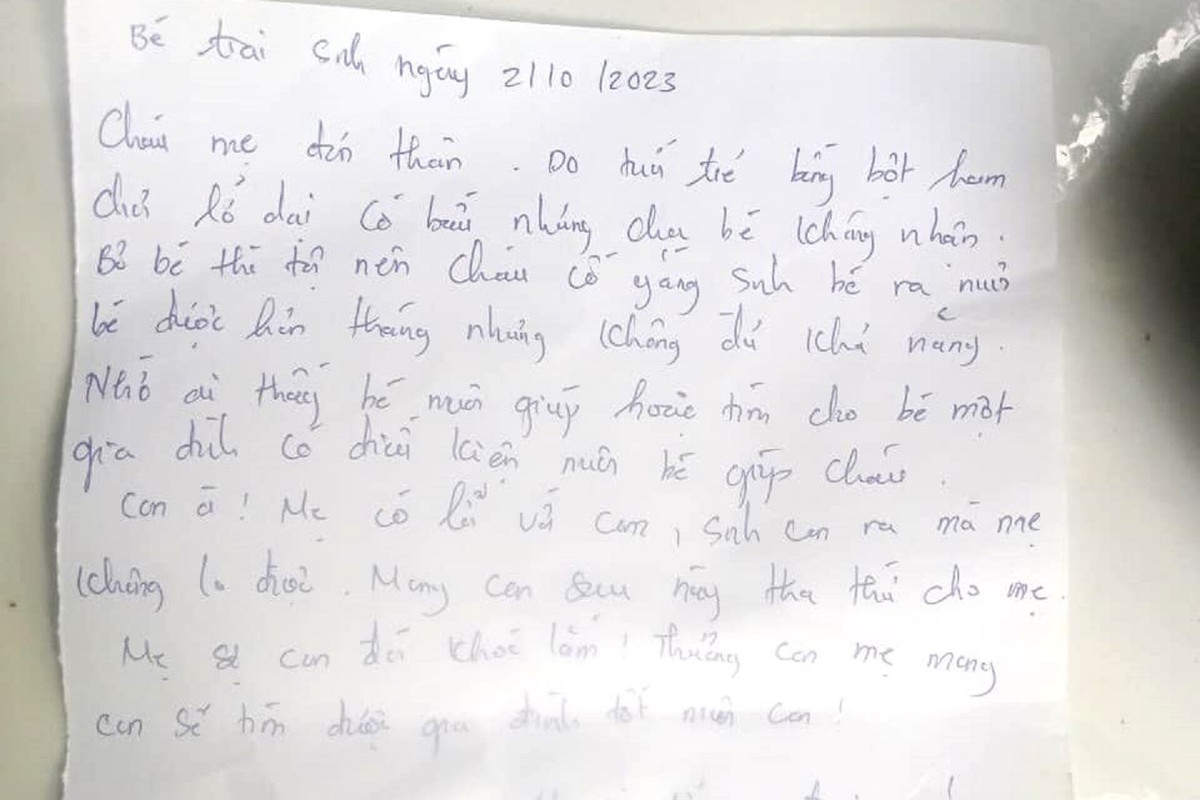 Bé trai sinh ngày 2/10/2023
Cháu mẹ đơn thân. Do tuổi trẻ bồng bột ham
chơi lở dại có bầu nhưng cha bé không nhân.
Bỏ bé thì tội nên cháu cố gắng sinh bé ra nuôi
bé được hơn tháng nhưng không đủ khả năng.
Nhờ ai thấy bé nuôi giúp hoặc tìm cho bé một
gia đình có điều kiện nuôi bé giúp cháu.
Con à! Mẹ có lỗi với con, sinh con ra mà mẹ
không lo được. Mong con sau này tha thứ cho mẹ.
Mẹ sợ con đói khóc lắm! Thương con mẹ mong
con sẽ tìm được gia đình tốt nuôi con!